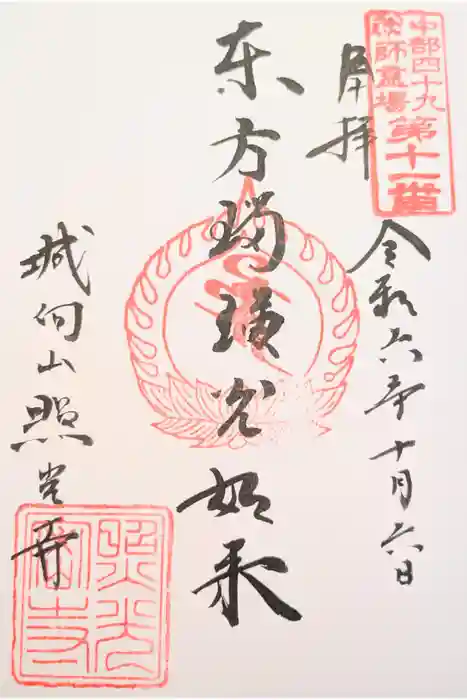 中部四十九
薬師霊場
第十一番
奉拝
令和六年十月六日
东方瑠璃光如来
城向山照光寺
照光
寺